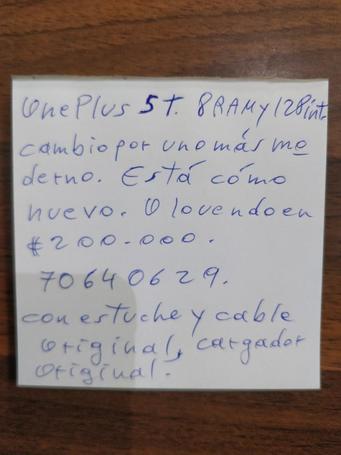 OnePlus 5T. 8RAM y 128int.
cambio por uno más mo
derno. Está cómo
nuevo. O lo vendo en
₡200.000.
70640629.
con estuche y cable
original, cargador
original.